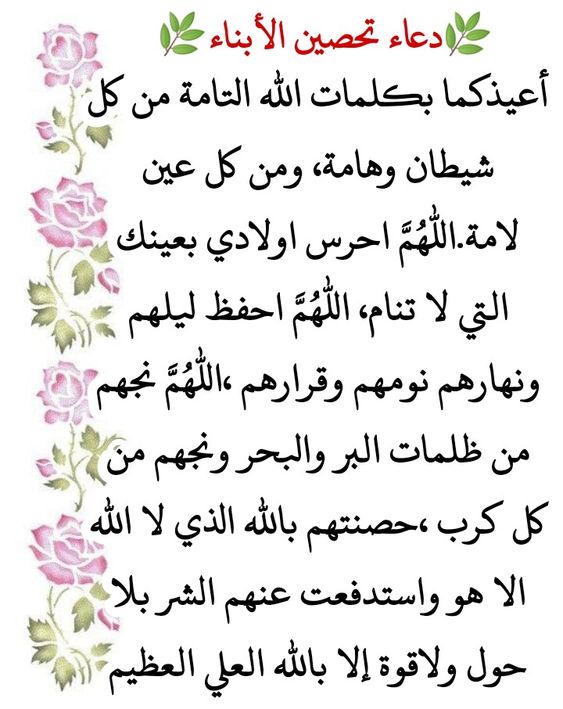 🌿دعاء تحصين الأبناء🌿
أعيذكما بكلمات الله التامة من كل
شيطان وهامة، ومن كل عين
لامة.اللهُمَّ احرس اولادي بعينك
التي لا تنام، اللهُمَّ احفظ ليلهم
ونهارهم نومهم وقرارهم ،اللهُمَّ نجهم
من ظلمات البر والبحر ونجهم من
كل كرب ،حصنتهم بالله الذي لا الله
الا هو واستدفعت عنهم الشر بلا
حول ولاقوة إلا بالله العلي العظيم